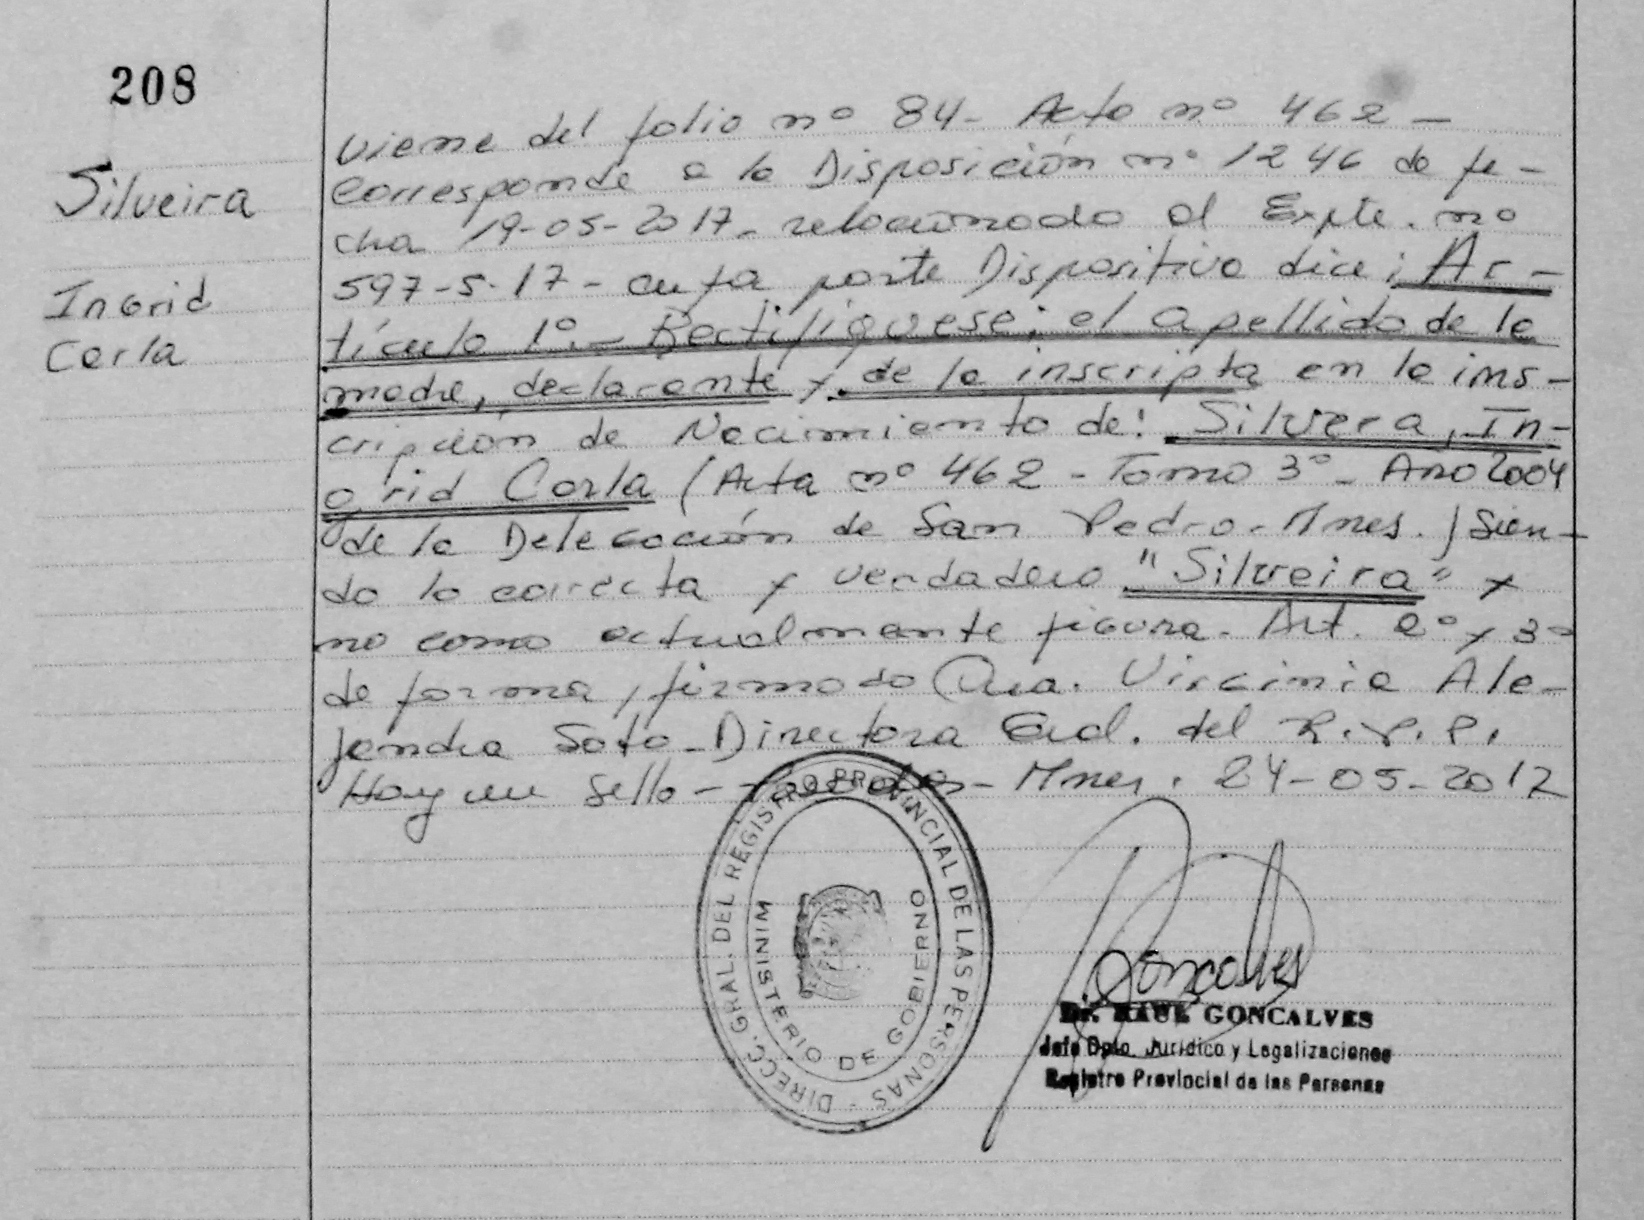 208
Silveira
Ingrid
Carla
viene del folio nº 84 - Acta nº 462 -
corresponde a la Disposición nº 1246 de fe-
cha 19-05-2017 - relacionado al Expte. nº
597-S-17 - cuya parte Dispositiva dice: Ar-
tículo 1º.- Rectifíquese: el apellido de la
madre, declarante y de la inscripta en la ins-
cripción de Nacimiento de: Silvera, In-
grid Carla (Acta nº 462 - Tomo 3º - Año 2004
de la Delegación de San Pedro - Mnes.) sien-
do lo correcta y verdadero "Silveira" y
no como actualmente figura. Art. 2º y 3º
de forma, firmado Dra. Virginia Ale-
jandra Soto - Directora Gral. del R.P.P.
Hay un sello - Posadas - Mnes. 24-05-2017
DIRECC. GRAL. DEL REGISTRO PROVINCIAL DE LAS PERSONAS -
MINISTERIO DE GOBIERNO
Goncalves
Dr. RAUL GONCALVES
Jefe Dpto. Jurídico y Legalizaciones
Registro Provincial de las Personas